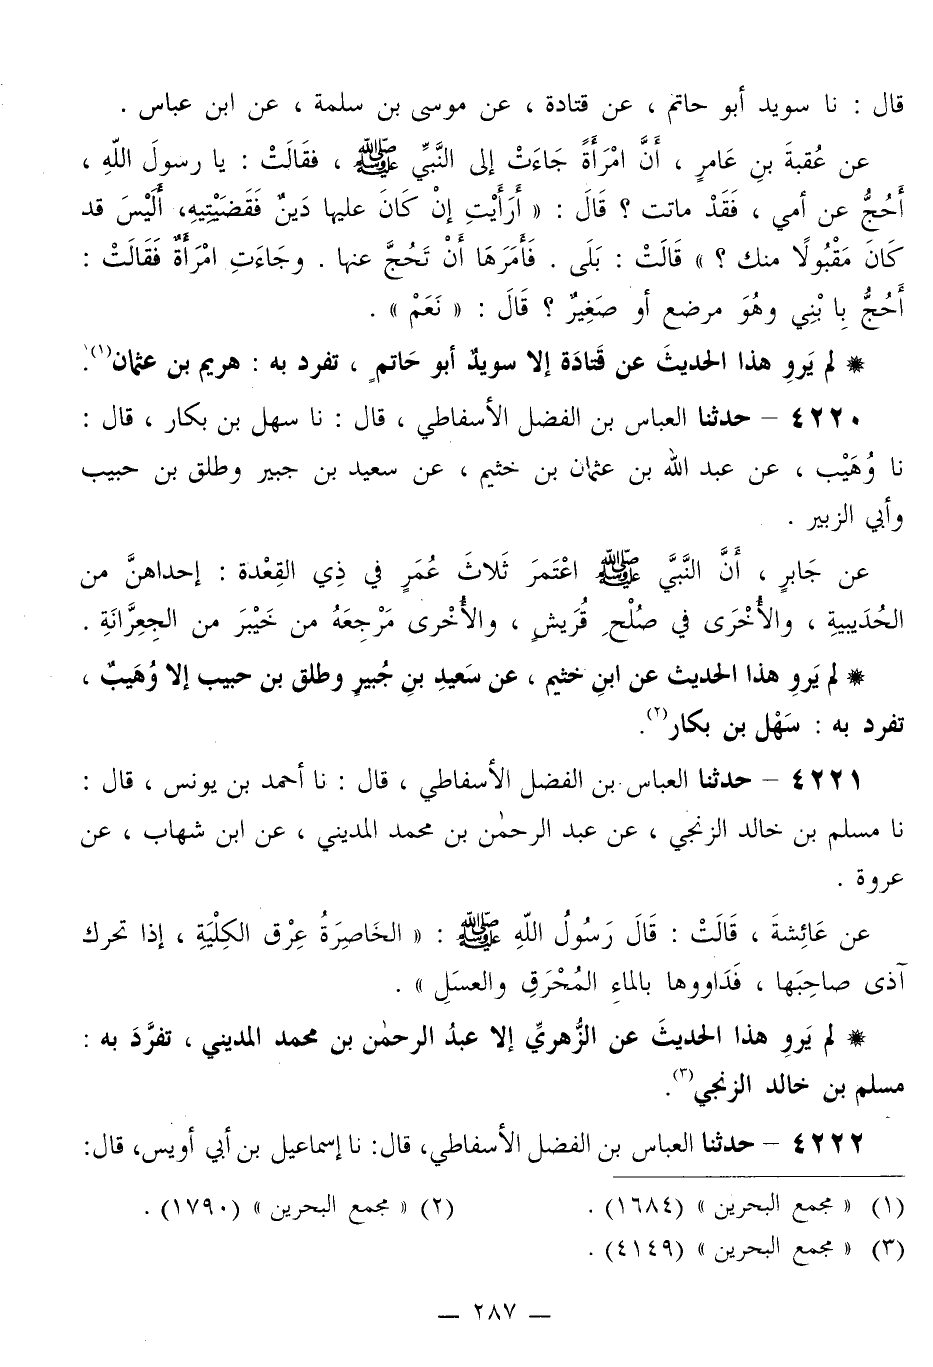 قال : نا سويد أبو حاتم ، عن قتادة ، عن موسى بن سلمة ، عن ابن عباس .
عن عُقبةَ بنِ عَامرٍ ، أَنَّ امْرَأَةً جَاءَتْ إلى النَّبِّي ﷺ ، فقَالَتْ : يا رسولَ اللهِ ،
أَحُجُّ عن أمي ، فَقَدْ ماتت ؟ قَالَ : « أرَأَيْتِ إنْ كَانَ عليها دَينٌ فَقَضَيْتِيهِ، أَلَيْسَ قد
كَانَ مَقْبُولًا منك ؟ » قَالَتْ : بَلَى . فَأَمَرَهَا أَنْ تَحُجَّ عنها . وجَاءَتِ امْرَأَةٌ فَقَالَتْ :
أَحُجُّ بِا بْنِي وهُوَ مرضع أو صَغِيرٌ ؟ قَالَ : « نَعَمْ » .
* لم يَروِ هذا الحديثَ عن قَتادَة إلا سويدٌ أبو حَاتمٍ ، تفرد به : هريم بن عثمان(١).
٤٢٢٠ – حدثنا العباس بن الفضل الأسفاطي ، قال : نا سهل بن بكار ، قال :
نا وُهَيْب ، عن عبد الله بن عثمان بن خثيم ، عن سعيد بن جبير وطلق بن حبيب
وأبي الزبير .
عن جَابرٍ ، أَنَّ النَّبيَّ ﷺ اعْتَمرَ ثَلاثَ عُمَرٍ في ذِي القِعْدة : إحداهنَّ من
الحُدَيبيةِ ، والأُخْرَى في صُلْحِ قُريشٍ ، والأُخْرى مَرْجِعَهُ من خَيْبَرَ من الجِعِرَّانَةِ .
* لم يَروِ هذا الحديث عن ابنِ خثيم ، عن سَعيدِ بنِ جُبيرٍ وطلق بن حبيب إلا وُهَيبٌ ،
تفرد به : سَهْل بن بكار(٢).
٤٢٢١ – حدثنا العباس بن الفضل الأسفاطي ، قال : نا أحمد بن يونس ، قال :
نا مسلم بن خالد الزنجي ، عن عبد الرحمٰن بن محمد المديني ، عن ابن شهاب ، عن
عروة .
عن عَائِشةَ ، قَالَتْ : قَالَ رَسُولُ اللهِ ﷺ : « الخَاصِرَةُ عِرْق الكِلْيَةِ ، إذا تحرك
آذى صاحِبَها ، فَدَاووها بالماءِ المُحْرَقِ والعسَلِ » .
* لم يَروِ هذا الحديثَ عن الزُّهريِّ إلا عبدُ الرحمٰن بن محمد المديني ، تفرَّدَ به :
مسلم بن خالد الزنجي(٣).
٤٢٢٢ – حدثنا العباس بن الفضل الأسفاطي، قال: نا إسماعيل بن أبي أويس، قال:
(١) « مجمع البحرين » (١٦٨٤) . (٢) « مجمع البحرين » (١٧٩٠) .
(٣) « مجمع البحرين » (٤١٤٩) .
— ٢٨٧ —